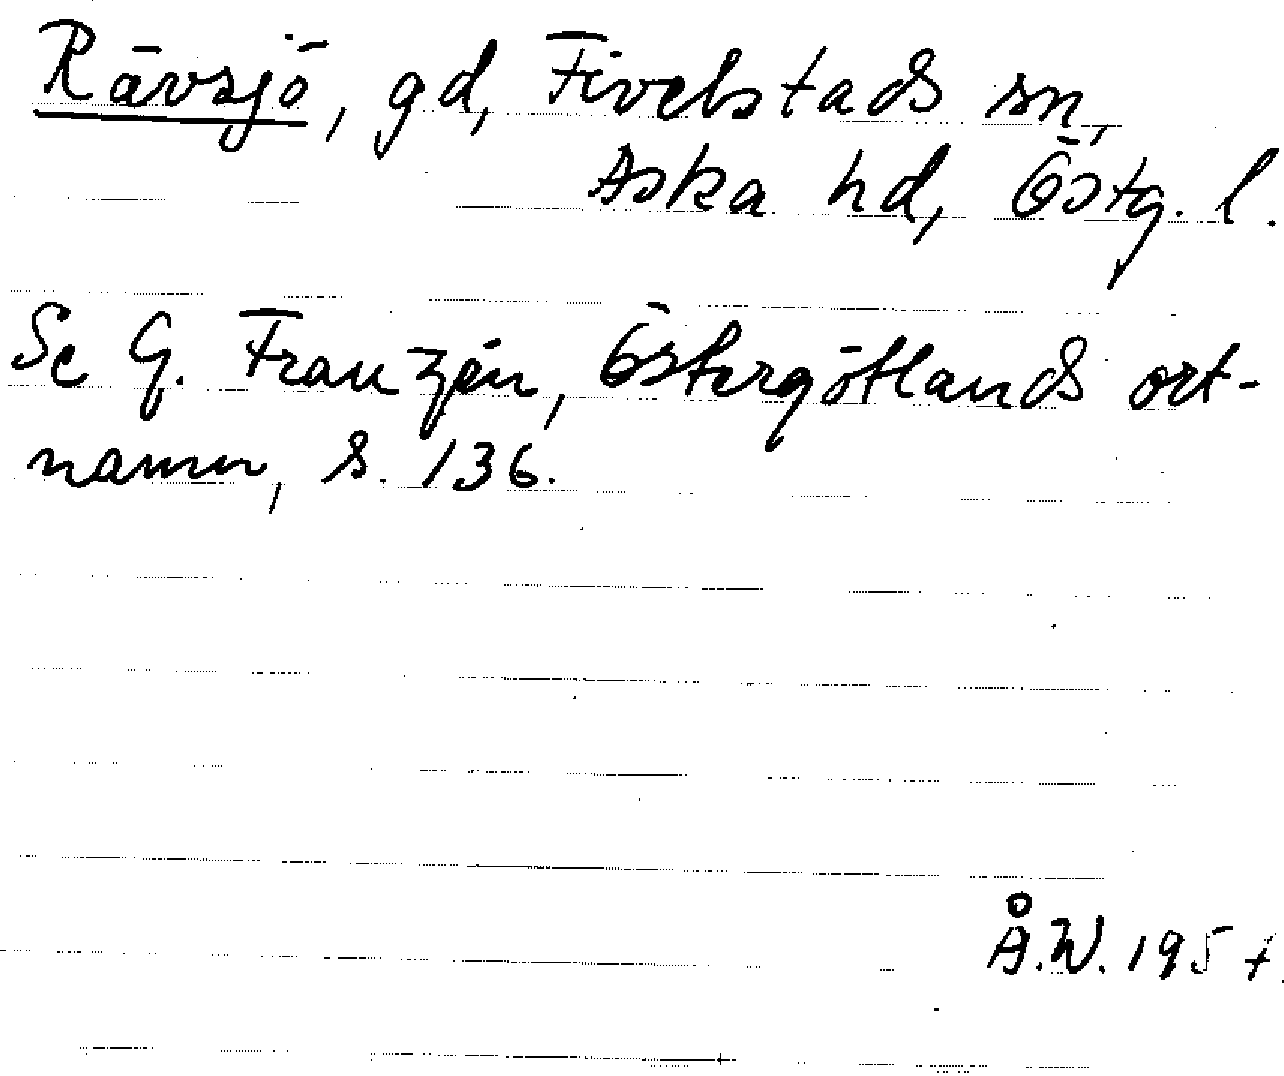 Rävsjö, gd, Fivelstads sn,
Aska hd, Östg. l.
Se G. Franzén, Östergötlands ort-
namn, s. 136.
Å.W. 195